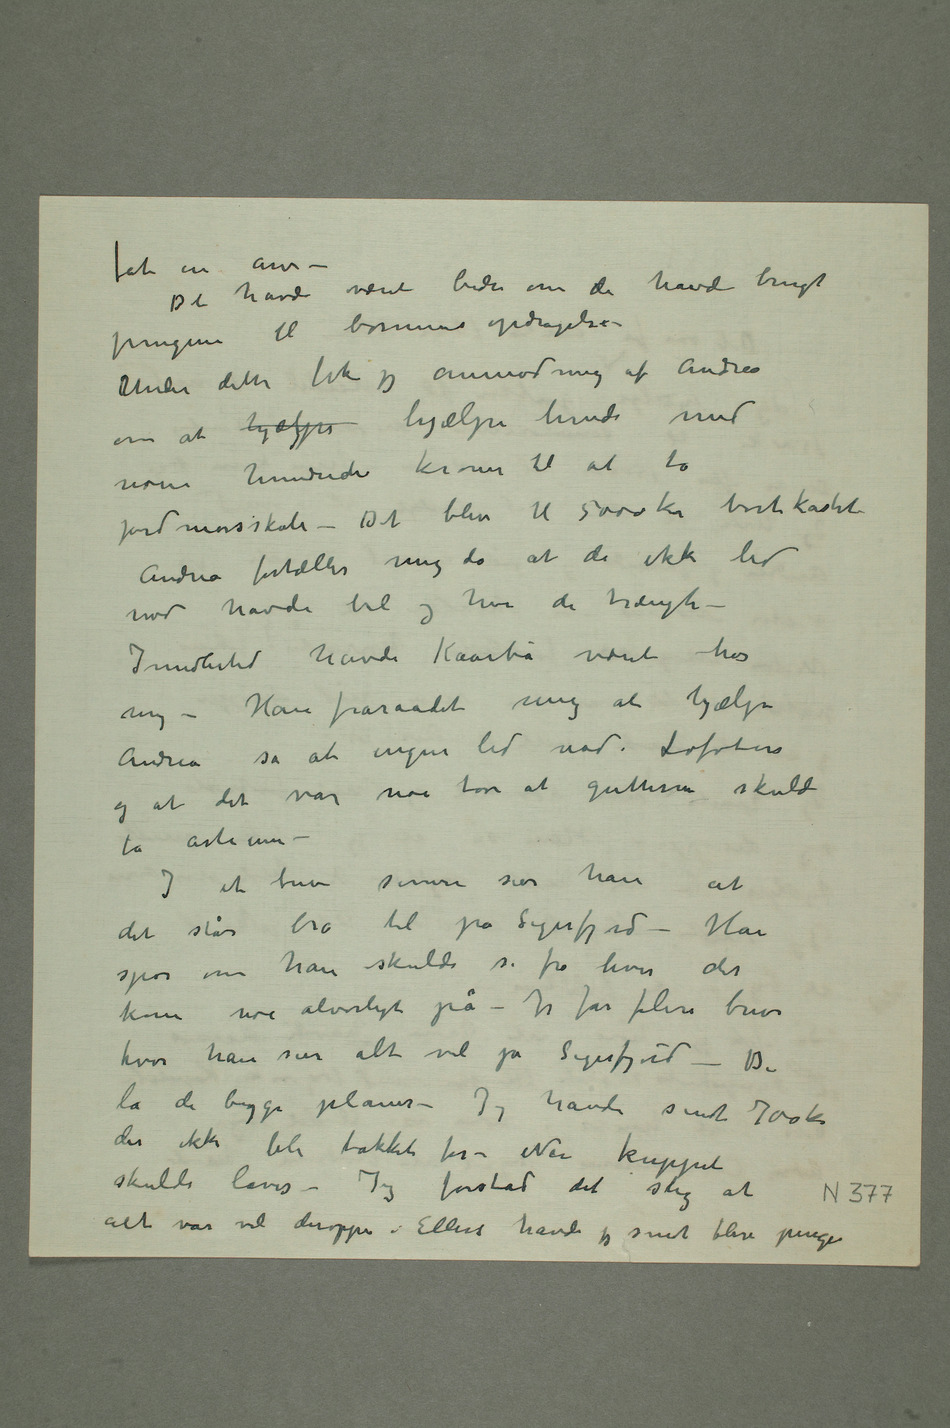 fåt en arv –
Det havde været bedre om de havde brugt
pengene til børnenes opdragelse –
Under dette fik jeg anmodning af Andrea
om at hjælpe hjælpe hende med
noen hundrede kroner til at ta
jordmorsskole – Det blev til 5000 kr bortkastet
Andrea fortæller mig da at de ikke led
nød havde bil og hva de trængte –
Imidlertid havde Kaarbø været hos
mig – Han fraraadet mig at hjælpe
Andrea sa at ingen led nød i Lofoten
og at det var noe tøv at gutterne skulde
ta artium –
I et brev senere sier han at
det står bra til på Sigerfjord – Han
spør om han skulde si fra hvis det
kom noe alvorligt på – Jeg får flere breve
hvor han sier alt vel på Sigerfjord – De
la de bygge planer – Jeg havde sendt 700 kr
der ikke ble takket for – Når kuppet
skulde laves – Jeg forstod det slig at
alt var vel deroppe. Ellers havde jeg sendt flere penge
N 377